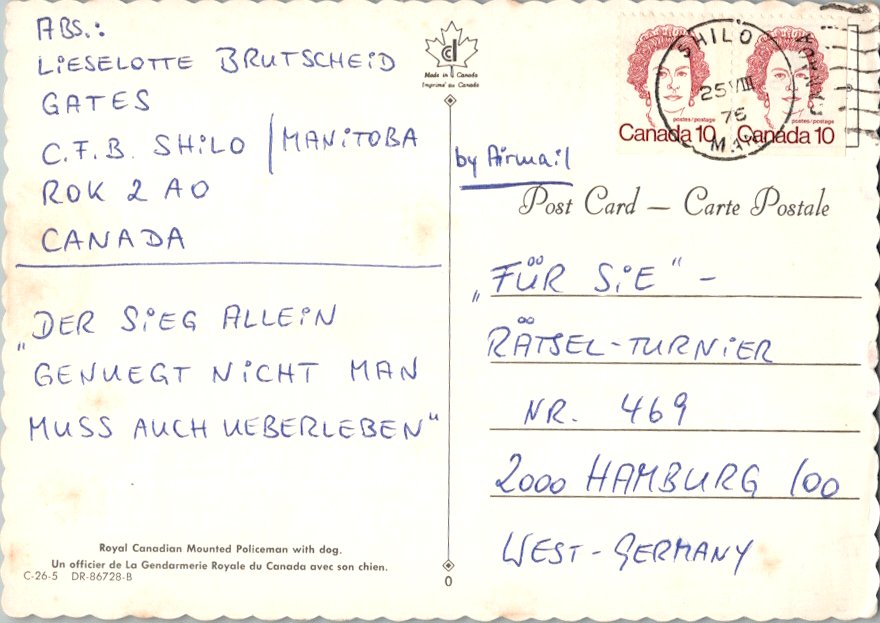 ABS.:
LIESELOTTE BRUTSCHEID
GATES
C.F.B. SHILO / MANITOBA
ROK 2 AO
CANADA
„DER SIEG ALLEIN
GENUEGT NICHT MAN
MUSS AUCH UEBERLEBEN“
Royal Canadian Mounted Policeman with dog.
Un officier de La Gendarmerie Royale du Canada avec son chien.
C-26-5 DR-86728-B
Made in Canada
Imprimé au Canada
postes/postage
Canada 10
postes/postage
Canada 10
SHILO
25 VIII
76
MAN
by Airmail
Post Card — Carte Postale
„FÜR SIE“ –
RÄTSEL-TURNIER
NR. 469
2000 HAMBURG 100
WEST-GERMANY
0